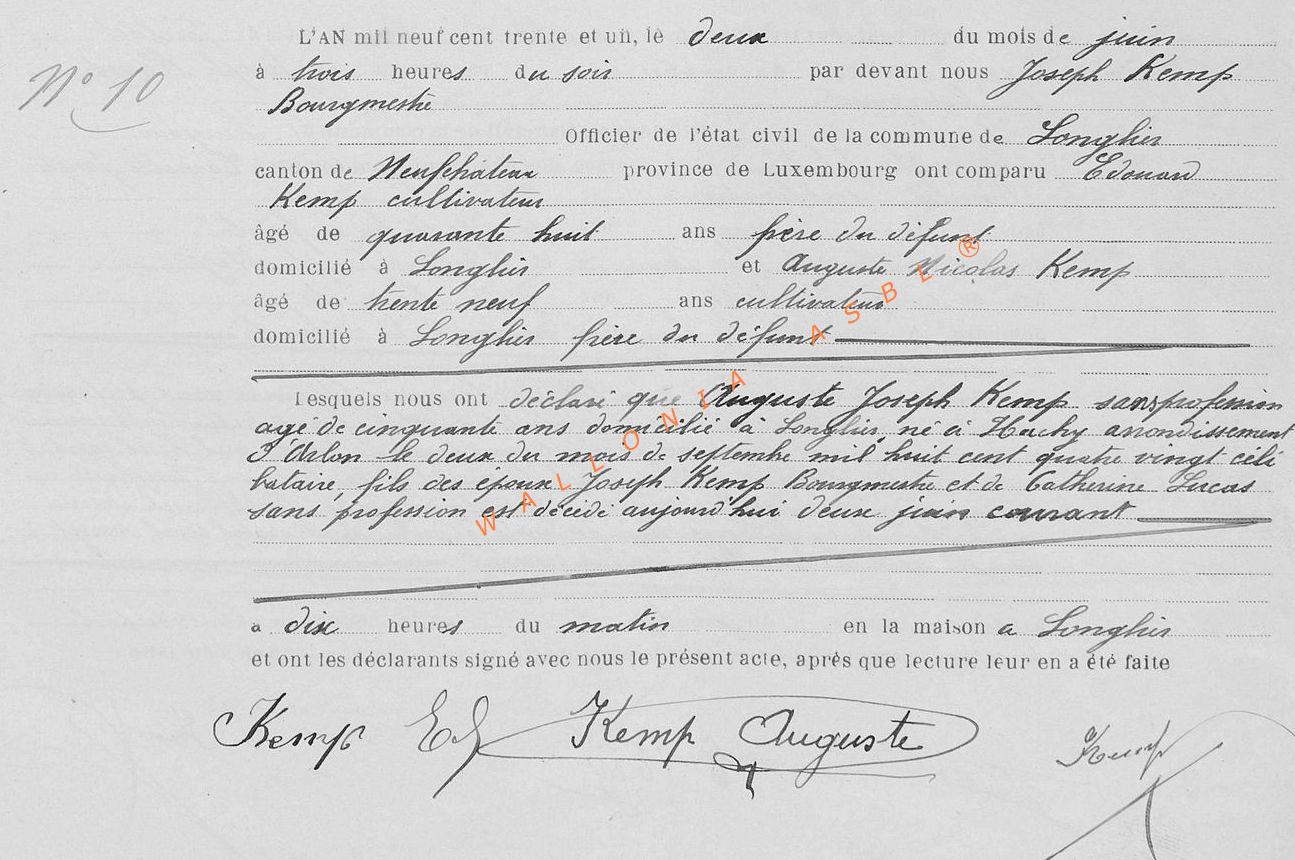 L'AN mil neuf cent trente et un, le deux du mois de juin
à trois heures du soir par devant nous Joseph Kemp
N° 10
Bourgmestre
Officier de l'état civil de la commune de Longlier
canton de Neufchâteau province de Luxembourg ont comparu Edouard
Kemp cultivateur
âgé de quarante huit ans frère du défunt
domicilié à Longlier et Auguste Nicolas Kemp
âgé de trente neuf ans cultivateur
domicilié à Longlier frère du défunt
Lesquels nous ont déclaré que Auguste Joseph Kemp sans profession
agé de cinquante ans domicilié à Longlier, né à Hachy arrondissement
d'Arlon le deux du mois de septembre mil huit cent quatre vingt céli
bataire, fils des époux Joseph Kemp Bourgmestre et de Catherine Lucas
sans profession est décédé aujourd'hui deux juin courant
à dix heures du matin en la maison a Longlier
et ont les déclarants signé avec nous le présent acte, après que lecture leur en a été faite
Kemp Ed Kemp Auguste Kemp
WALLONIA ASBL ®